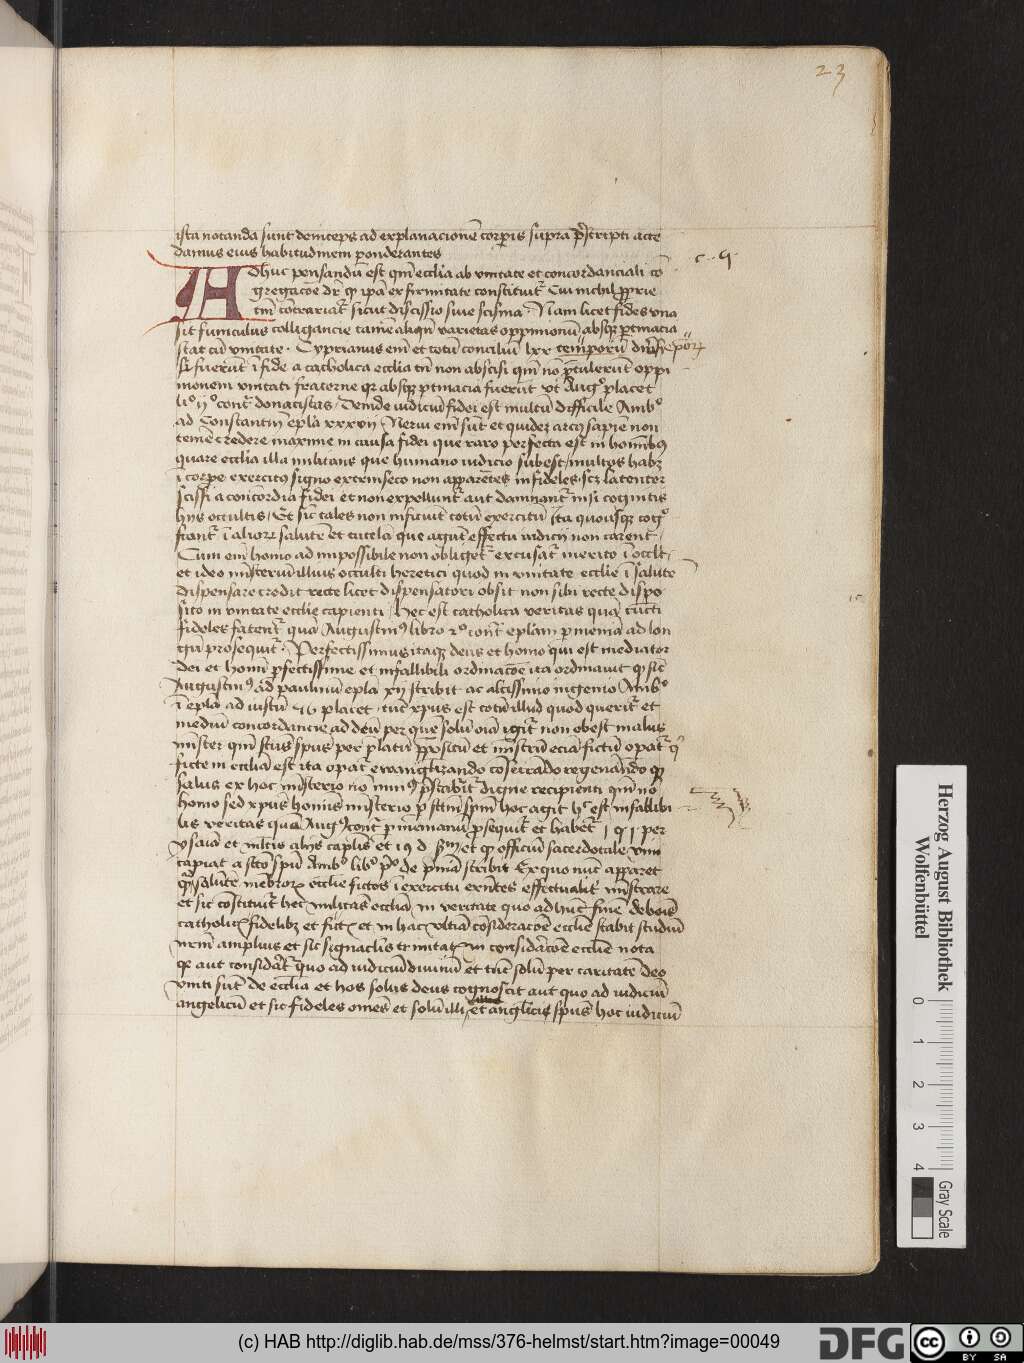 23
ista notanda sunt deinceps ad explanacionē corporis supra p̄scripti acce
damus eius habitudinem ponderantes
c. 9.
Adhuc pensandū est qm̄ eccl̄ia ab vnitate et concordanciali cō
gregacōe dr̄ ꝙ ip̄a ex firmitate constituit̄ Cui nichil ꝓprie
tm̄ cōtrariat̄ sicut discissio siue scisma . Nam licet fides vna
sit funiculus colligancie tamē aliqn̄ varietas oppinionū absqꝫ ꝑtinacia
stat cū vnitate . Cyprianus em̄ et totū conciliū lxx temporū
fuerūt ī fide a catholica eccl̄ia tn̄ non abscisi qm̄ nō p̄tulerūt oppi
nionem vnitati fraterne qꝛ absqꝫ ꝑtinacia fuerūt vt Augꝰ placet
liº ijº contͣ donatistas / Deinde iudiciū fidei est multū difficile Ambº
ad Constantiū ep̄la xxxvij
temē credere maxime in causa fidei que raro perfecta est in hominibꝰ
quare eccl̄ia illa militans que humano iudicio subest / multos habꝫ
ī corpe exercitꝰ signo extrinseco non apparētes infideles . scꝫ latenter
scissi a concordia fidei et non expellunt̄ aut damnant̄ nisi cognitis
hijs occultis / Et sic tales non inficiūt totū exercitū Ita quousqꝫ cogº
fiant̄ ī alioꝝ salutē et tutela que agūt effectu iudicij non carent /
Cum em̄ homo ad impossibile non obliget̄ excusat̄ merito ī occl̄t /
et ideo mīsteriū illius occulti heretici quod in vnitate ecclīe ī salutē
dispensare credit recte licet dispensatori obsit non sibi recte dispo
sito in vnitate ecclīe capienti / Hec est catholica veritas quā cūcti
fideles fatent̄ quā Augustinꝰ libro 2º contͣ ep̄lam ꝑmeniani ad lon
gū prosequit̄ . Perfectissimus itaqꝫ deus et homo qui est mediator
dei et hominū ꝑfectissime et infallibili ordinacōe ita ordinauit ꝙ sic̄
Augustinꝰ ad paulinū ep̄la xij scribit ac altissimo ingenio Ambº
ī ep̄la ad iustū placet . tūc xp̄us est totū illud quod querit̄ et
mediū concordancie ad deū per quē solū oīa igit̄ non obest malus
mīster qm̄ sc̄us sp̄us per p̄latū p̄positū et mīstrū eciā fictū opat̄ qͥ
ficte in eccl̄ia est ita opat̄ ewangelizando cōsecrādo regenerādo ꝙ
salus ex hoc mīsterio nō minꝰ p̄scribit̄ digne recipienti qm̄ nō
homo sed xp̄us homīs mīsterio ꝑ sc̄m sp̄m hoc agit hͦ est infallibi
lis veritas quā Augꝰ contͣ ꝑmenianū ꝓsequit̄ et habet̄ 1 q 1 per
ysaiā et mltis alijs cap̄lis et 19 d et ꝙ officiū sacerdotale vim
capiat a sc̄o sp̄u Ambº libº pº de pn̄ia scribit Ex quo nūc apparet
salutē mēbroꝝ ecclīe fictos ī exercitu exn̄tes effectualit̄ mīstrare
et sic cōstituit̄ hec militās eccl̄ia in veritate quo ad hūc finē de bonis
catholicꝭ fidelibꝫ et fictꝭ et in hac vltīa cōsideracōe ecclīe stabit studiū
nr̄m amplius et sic signaclīs trinitatꝭ in considacōe ecclīe nota
ꝙ aut considat̄ quo ad iudiciū diuinū et tūc solū per caritatē deo
vniti sūt de eccl̄ia et hos solus deus cognoscit aut quo ad iudiciū
angelicū et sic fideles om̄es et solū illi et angelicꝰ sp̄us hoc iudiciū
Herzog August Bibliothek
Wolfenbüttel
0 1 2 3 4
Gray Scale
(c) HAB http://diglib.hab.de/mss/376-helmst/start.htm?image=00049
DFG
cc BY SA